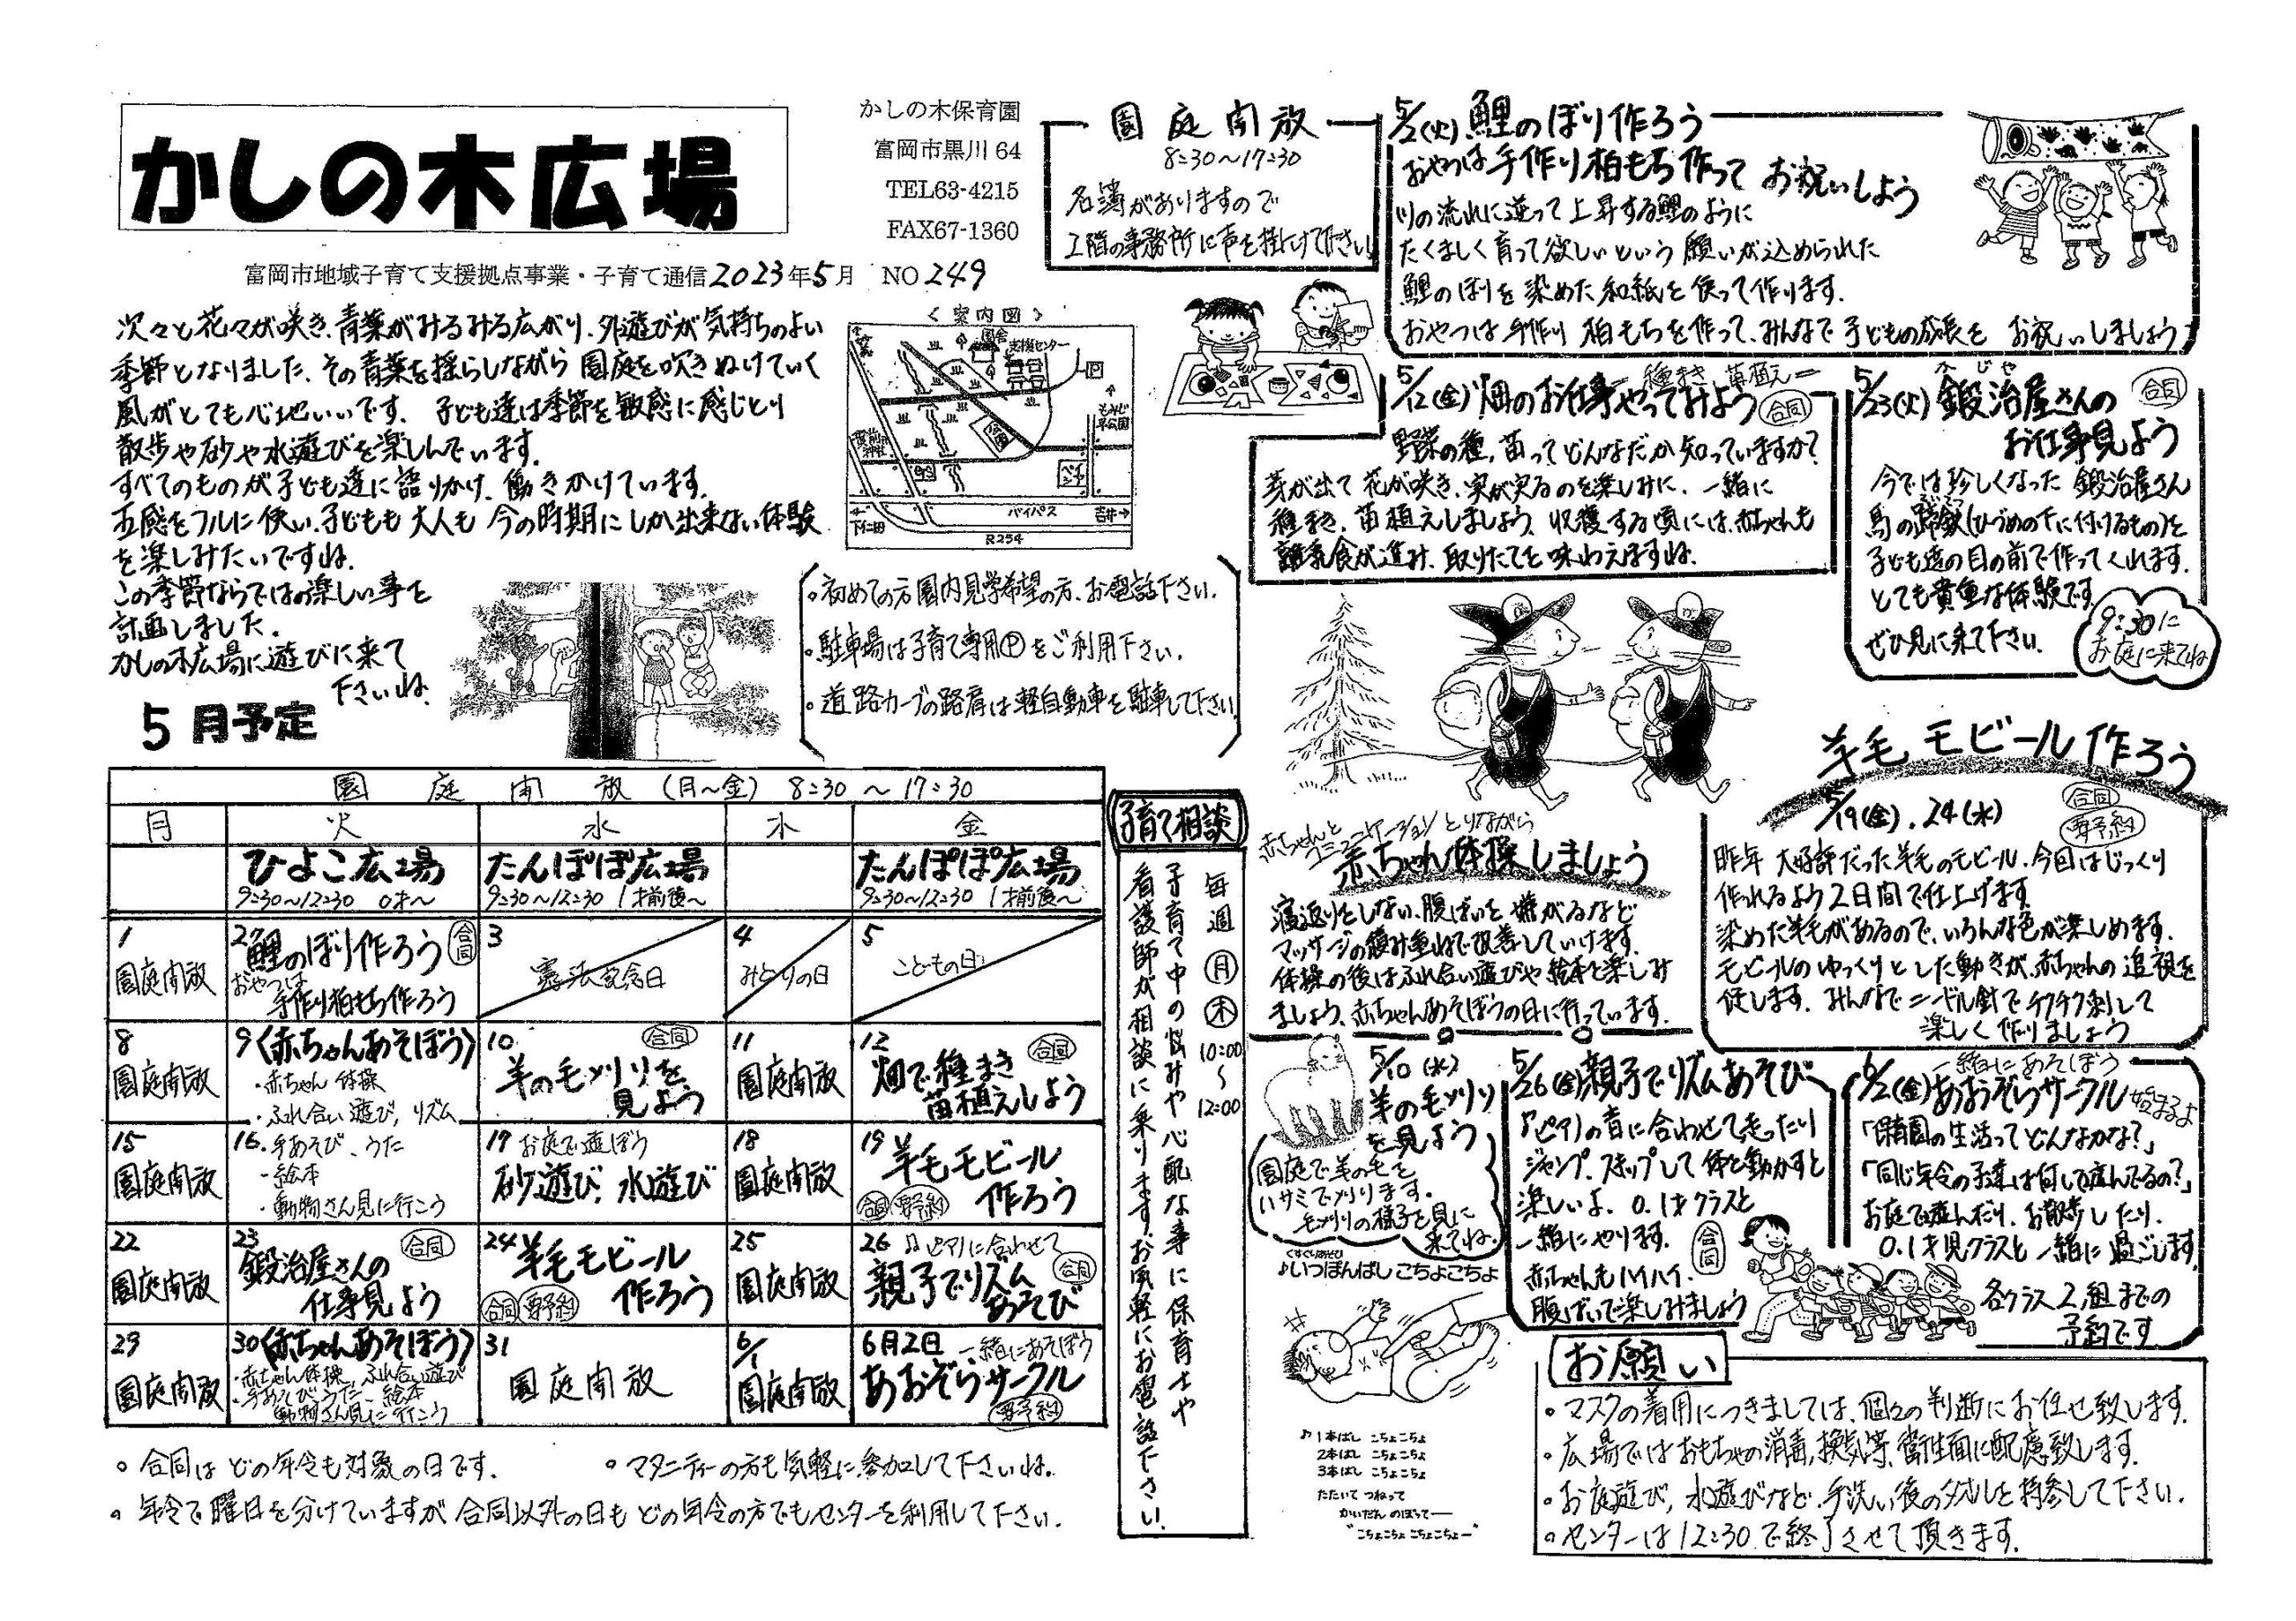 かしの木広場
かしの木保育園
富岡市黒川64
TEL63-4215
FAX67-1360
富岡市地域子育て支援拠点事業・子育て通信2023年5月 NO249
次々と花々が咲き、青葉がみるみる広がり、外遊びが気持ちのよい
季節となりました。その青葉を揺らしながら園庭を吹きぬけていく
風がとても心地いいです。子ども達は季節を敏感に感じとり
散歩や砂や水遊びを楽しんでいます。
すべてのものが子ども達に語りかけ、働きかけています。
五感をフルに使い、子どもも大人も今の時期にしか出来ない体験
を楽しみたいですね。
この季節ならではの楽しい事を
計画しました。
かしの木広場に遊びに来て
下さいね。
<案内図>
園舎
支援センター
もみじ平公園
バイパス
下仁田
吉井→
R254
・初めての方園内見学希望の方、お電話下さい。
・駐車場は子育て専用Ⓟをご利用下さい。
・道路カーブの路肩は軽自動車を駐車して下さい
園庭開放
8:30~17:30
名簿がありますので
2階の事務所に声を掛けて下さい
5/2(火)鯉のぼり作ろう
おやつは手作り柏もち作ってお祝いしよう
川の流れに逆って上昇する鯉のように
たくましく育って欲しいという願いが込められた
鯉のぼりを染めた和紙を使って作ります。
おやつは手作り柏もちを作って、みんなで子どもの成長をお祝いしましょう
5/12(金)畑のお仕事やってみよう 合同
―種まき 苗植え―
野菜の種、苗ってどんなだか知っていますか?
芽が出て花が咲き、実が実るのを楽しみに、一緒に
種まき、苗植えしましょう。収穫する頃には、赤ちゃんも
離乳食が進み、取りたてを味わえますね。
5/23(火)鍛冶屋さんの 合同
かじや
お仕事見よう
今では珍しくなった鍛冶屋さん
馬の蹄鉄(ひづめの下に付けるもの)を
子ども達の目の前で作ってくれます。
とても貴重な体験です。
ぜひ見に来て下さい。
9:30に
お庭に来てね
5月予定
園庭開放(月~金) 8:30~17:30
月 火 水 木 金
ひよこ広場 たんぽぽ広場 たんぽぽ広場
9:30~12:30 0才~ 9:30~12:30 1才前後~ 9:30~12:30 1才前後~
1 園庭開放
2 鯉のぼり作ろう 合同
おやつは
手作り柏もち作ろう
3 憲法記念日
4 みどりの日
5 こどもの日
8 園庭開放
9〈赤ちゃんあそぼう〉
・赤ちゃん体操
・ふれ合い遊び,リズム
10 合同
羊の毛刈りを
見よう
11 園庭開放
12 合同
畑で種まき
苗植えしよう
15 園庭開放
16.・手あそび、うた
・絵本
・動物さん見に行こう
17 お庭で遊ぼう
砂遊び、水遊び
18 園庭開放
19 羊毛モビール
作ろう
合同 要予約
22 園庭開放
23 合同
鍛冶屋さんの
仕事見よう
24 羊毛モビール
作ろう
合同 要予約
25 園庭開放
26 ♫ピアノに合わせて
親子でリズム
あそび
合同
29 園庭開放
30〈赤ちゃんあそぼう〉
・赤ちゃん体操、ふれ合い遊び
・手あそび、うた・絵本
動物さん見に行こう
31 園庭開放
6/1 園庭開放
6月2日 一緒にあそぼう
あおぞらサークル
要予約
・合同はどの年令も対象の日です。
・マタニティーの方も気軽に参加して下さいね。
・年令で曜日を分けていますが合同以外の日もどの年令の方でもセンターを利用して下さい。
子育て相談
毎週 月 木 10:00~12:00
子育て中の悩みや心配な事に保育士や
看護師が相談に乗ります。お気軽にお電話下さい。
赤ちゃんと
コミュニケーションとりながら
赤ちゃん体操しましょう
寝返りをしない、腹ばいを嫌がるなど
マッサージの積み重ねで改善していけます。
体操の後はふれ合い遊びや絵本を楽しみ
ましょう。赤ちゃんあそぼうの日に行っています。
羊毛モビール作ろう
5/19(金)、24(水) 合同 要予約
昨年大好評だった羊毛のモビール。今回はじっくり
作れるよう2日間で仕上げます。
染めた羊毛があるので、いろんな色が楽しめます。
モビールのゆっくりとした動きが、赤ちゃんの追視を
促します。みんなでニードル針でチクチク刺して
楽しく作りましょう
5/10(水)
羊の毛刈り
を見よう
園庭で羊の毛を
ハサミで刈ります。
毛刈りの様子を見に
来てね。
5/26(金)親子でリズムあそび
『ピアノの音に合わせて走ったり
ジャンプ、スキップして体を動かすと
楽しいよ。0.1才クラスと
一緒にやります。
赤ちゃんもハイハイ、
腹ばいで楽しみましょう
合同
一緒にあそぼう
6/2(金)あおぞらサークル始まるよ
「保育園の生活ってどんなかな?」
「同じ年令の子達は何して遊んでるの?」
お庭で遊んだり、お散歩したり、
0.1才児クラスと一緒に過ごします
各クラス2組までの
予約です
くすぐりあそび
♪いっぽんばし こちょこちょ
♪1本ばし こちょこちょ
2本ばし こちょこちょ
3本ばし こちょこちょ
たたいて つねって
かいだん のぼって―
"こちょこちょ こちょこちょ―"
お願い
・マスクの着用につきましては、個々の判断にお任せ致します。
・広場ではおもちゃの消毒,換気等、衛生面に配慮致します。
・お庭遊び,水遊びなど、手洗い後のタオルを持参して下さい。
・センターは12:30で終了させて頂きます。